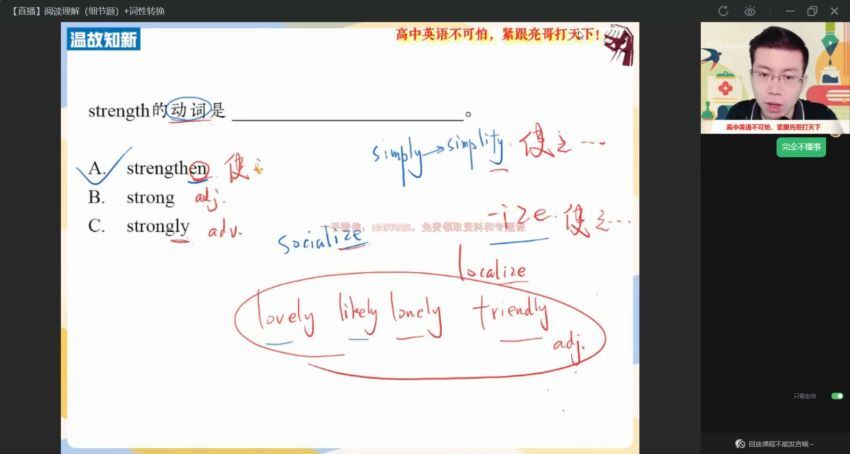 【直播】阅读理解（细节题）+词性转换
温故知新
高中英语不可怕，紧跟亮哥打天下！
strength的动词是 ____________________。
simply→simplify. 使之…
A. strengthen 使
B. strong adj.
C. strongly adv.
-ize. 使之…
socialize
localize
lovely likely lonely friendly
adj.
高中英语不可怕，紧跟亮哥打天下
完全不懂事
只看老师
回放课程不能发言哦~